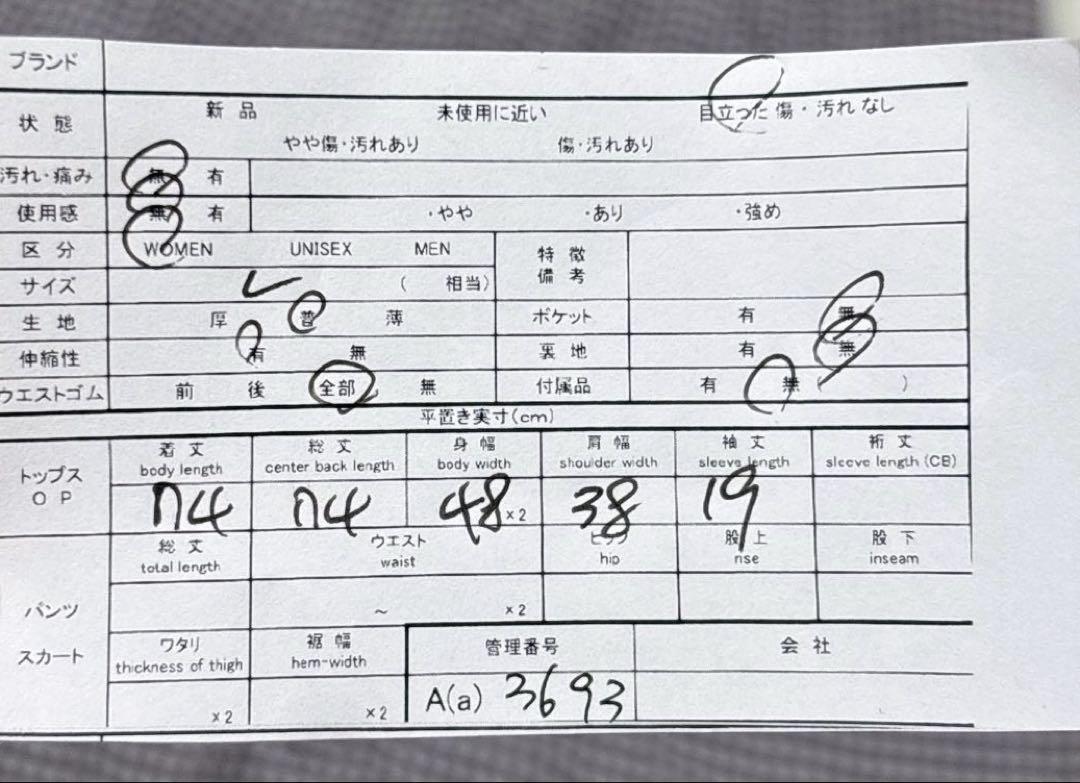 ブランド
状態 新品 未使用に近い 目立った傷・汚れなし
やや傷・汚れあり 傷・汚れあり
汚れ・痛み 無 有
使用感 無 有 ・やや ・あり ・強め
区分 WOMEN UNISEX MEN 特徴備考
サイズ ( 相当)
生地 厚 普 薄 ポケット 有 無
伸縮性 有 無 裏地 有 無
ウエストゴム 前 後 全部 無 付属品 有 無 ( )
平置き実寸(cm)
トップス OP 着丈 総丈 身幅 肩幅 袖丈 裄丈
body length center back length body width shoulder width sleeve length sleeve length (CB)
74 74 48 ×2 38 19
総丈 ウエスト ヒップ 股上 股下
total length waist hip rise inseam
パンツ ~ ×2
スカート ワタリ 裾幅 管理番号 会社
thickness of thigh hem-width
×2 ×2 A(a) 3693